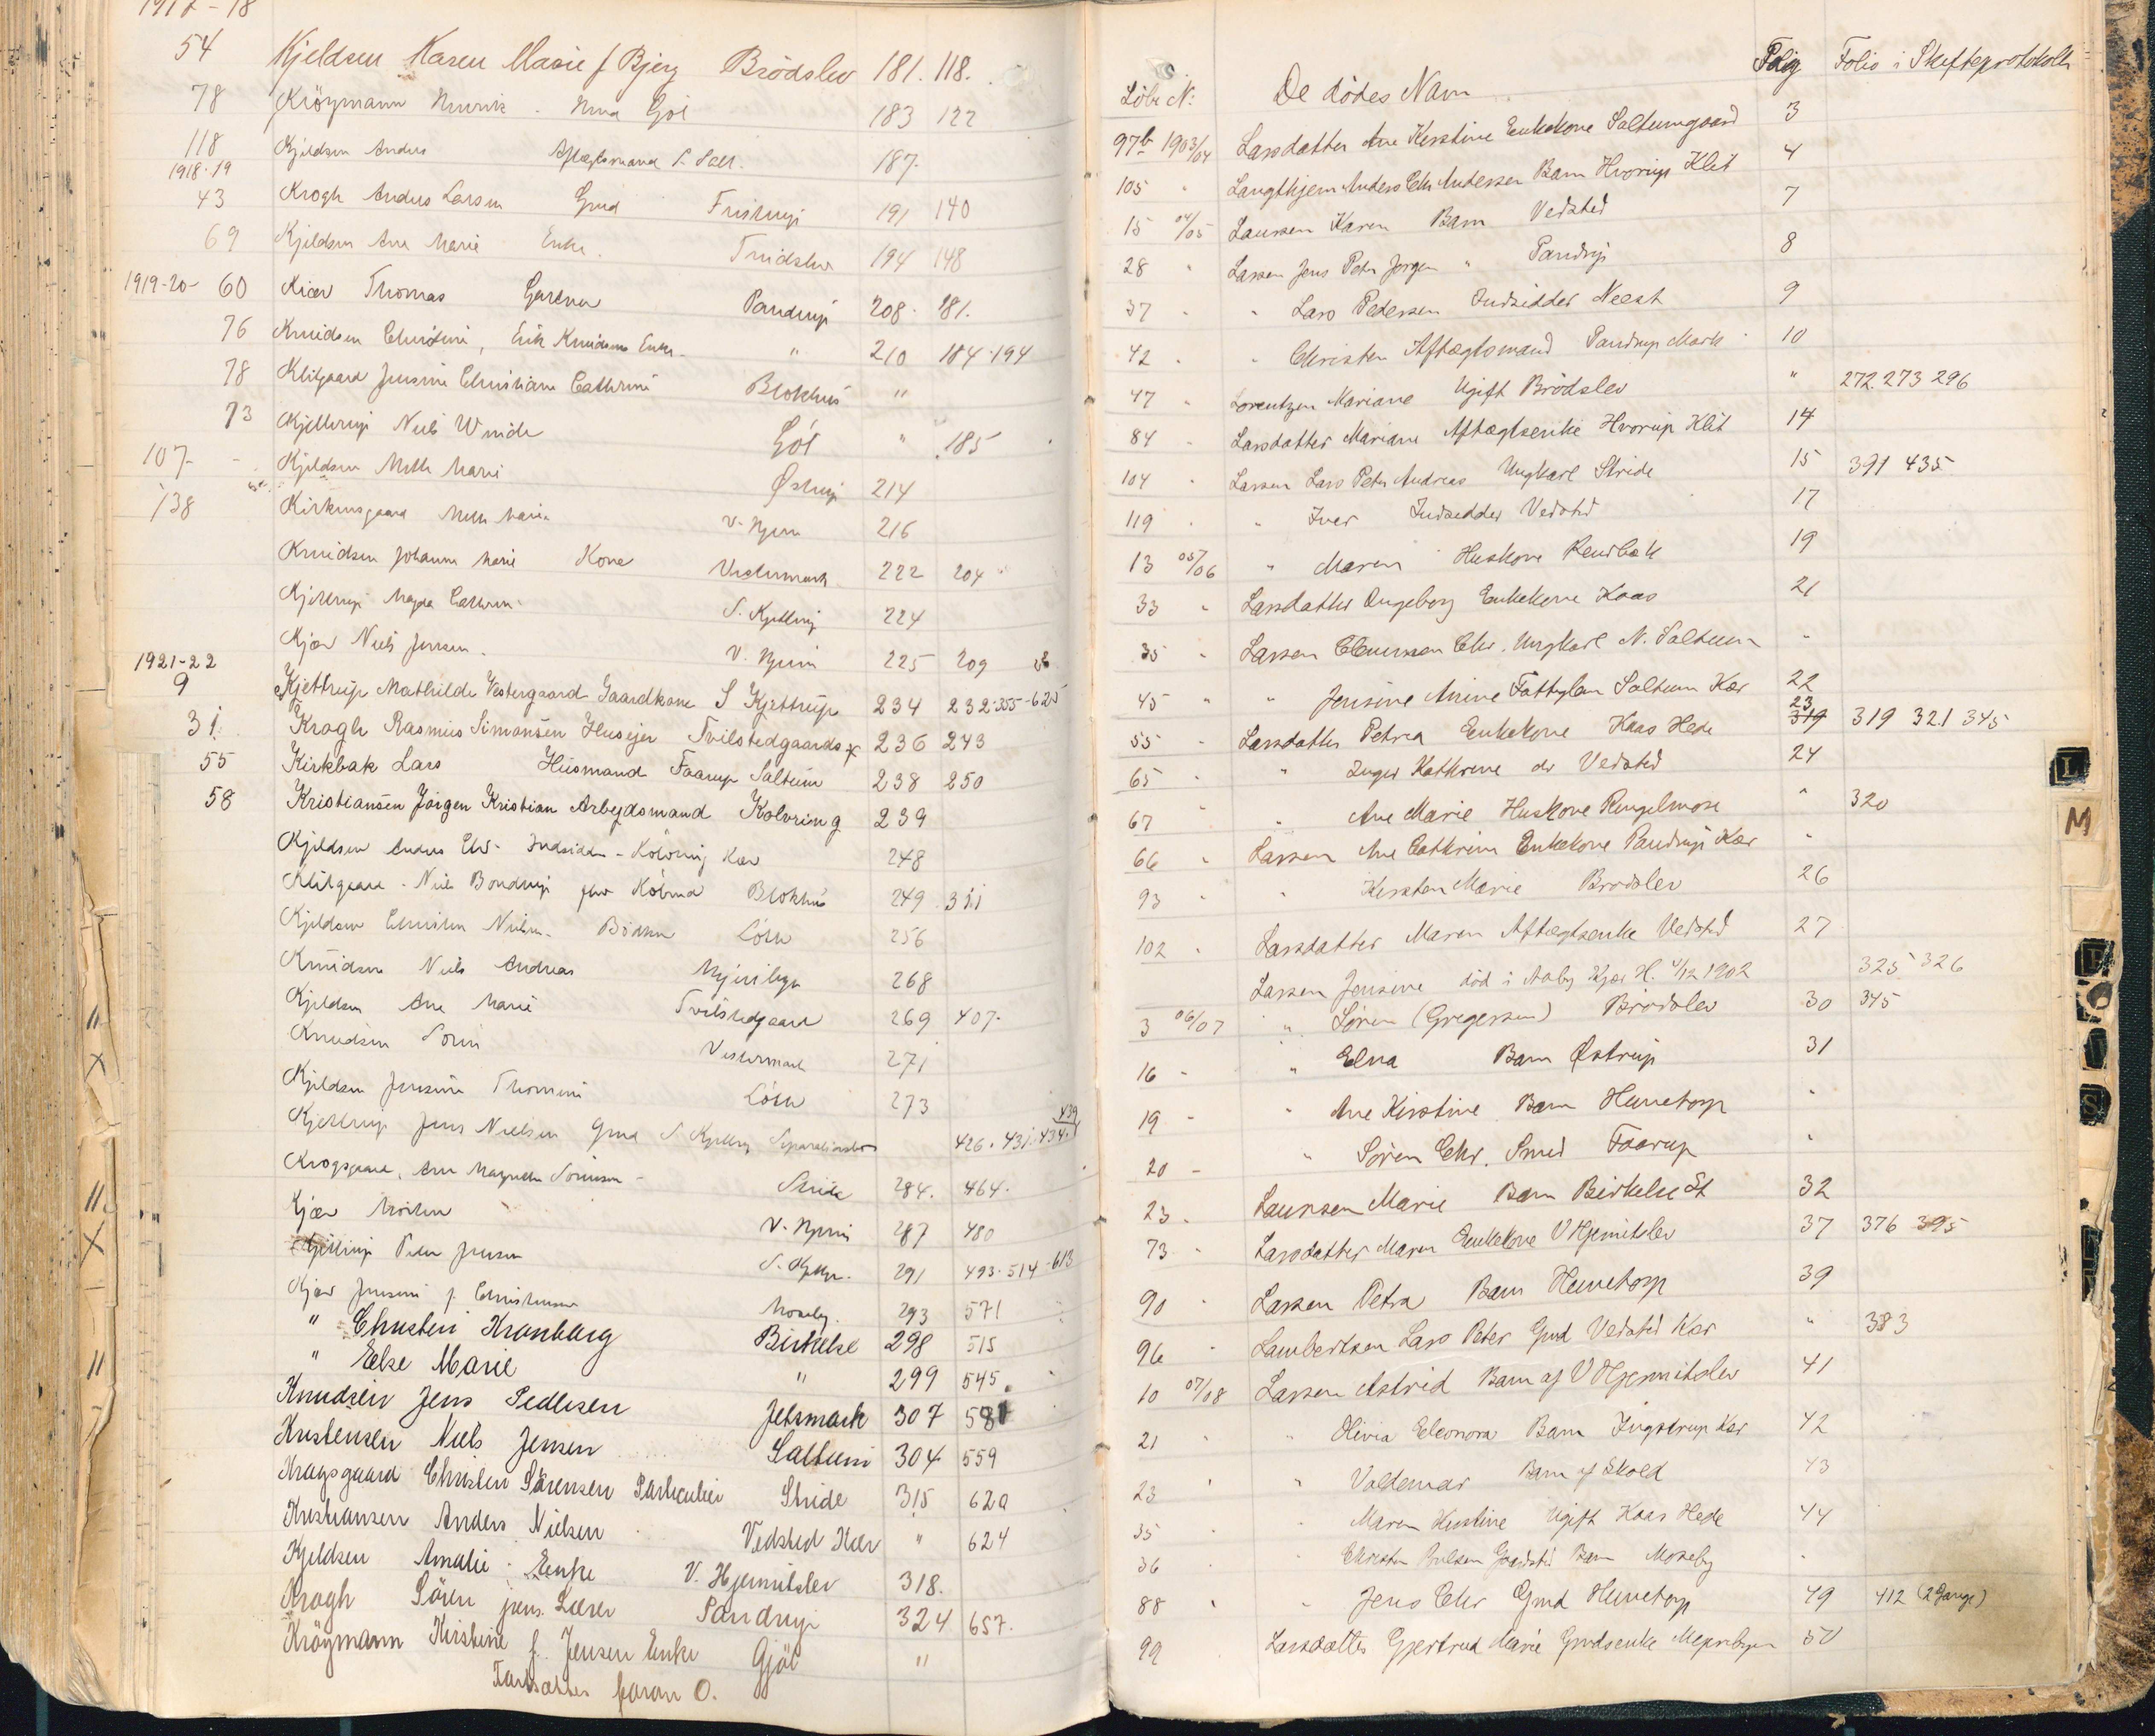 1917-18
54 Kjeldsen Karen Marie f. Bjerg Brödslev 181. 118.
78 Krögmann Gjöl 183 122
118 Kjeldsen Anders Aftægtsmand S. Salt. 187.
1918-19
43 Krogh Anders Larsen Gmd Fristrup 191 140
69 Kjeldsen Ane Marie Enke 194 148
1919-20- 60 Kiær Thomas Gartner Pandrup 208. 181.
76 Knudsen Christine, Erik Knudsens Enke " 210 184.194
78 Klitgaard Jensine Christiane Cathrine Blokhus "
73 Kjettrup Niels Winde Gjöl " 185
107 - Kjeldsen Mette Marie Østrup 214
138 Kirkensgaard Mette Marie V. Hjerm 216
Knudsen Johanne Marie Kone Vestermark 222 204
Kjettrup Magda Cathrine S. Kjettrup 224
Kjær Niels Jensen V. Hjerm 225 209
1921-22
9 Kjettrup Mathilde Vestergaard Gaardkone S Kjettrup 234 232-355-625
31 Kragh Rasmus Simonsen Husejer Tvilstedgaards 236 243
55 Kirkbak Lars Husmand Faarup Saltum 238 250
58 Kristiansen Jörgen Kristian Arbejdsmand Kolvring 239
Kjeldsen Anders Chr. Indsidder - Kolvring Kær 248
Klitgaard - Niels Bondrup fhv Købmd Blokhus 249 311
Kjeldsen Christen Nielsen Bödker 256
Knudsen Niels Andreas 268
Kjeldsen Ane Marie Tvilstedgaard 269 407.
Knudsen Sören Vestermark 271
Kjeldsen Jensine Thomine 273
Kjettrup Jens Nielsen Gmd S. Kjettrup Separationsbo 426. 431. 434. 439
Krogsgaard, Ane Magrethe Sörensen Stride 284. 464.
Kjær Morten V. Hjerm 287 480
Kjettrup Peder Jensen S. Kjettr. 291 493. 514 -613
Kjær Jensine f. Christensen Moseby 293 571
" Christen Kronborg Birkelse 298 515
" Else Marie " 299 545.
Knudsen Jens Pedersen Jetsmark 307 581
Kristensen Niels Jensen Saltum 304 559
Kragsgaard Christen Sörensen Partikulier Stride 315 620
Kristiansen Anders Nielsen Vedsted Kær " 624
Kjeldsen Amalie Enke V. Hjermitslev 318.
Kragh Sören Lærer Pandrup 324 657.
Krögmann Kirstine f. Jensen Enke Gjöl "
Fortsættes foran O.
Löbe N: De dødes Navn Folio Folio i Skifteprotokoll
97b 1903/04 Larsdatter Ane Kirstine Enkekone Saltumgaard 3
105 " Langthjem Anders Chr Andersen Barn Hvorup Klit 4
15 04/05 Laursen Karen Barn Vedsted 7
28 " Larsen Jens Peter Jørgen " Pandrup 8
37 " " Lars Pedersen Indsidder Neest 9
42 " " Christen Aftægtsmand Pandrup Mark 10
47 " Lorentzen Mariane Ugift Brödslev " 272 273 296
84 " Larsdatter Mariane Aftægtsenke Hvorup Klit 14
104 " Larsen Lars Peter Andreas Ungkarl Stride 15 391 435
119 " " Iver Indsidder Vedsted 17
13 05/06 " Maren Huskone Rendbæk 19
33 " Larsdatter Ingeborg Enkekone Kaas 21
35 " Larsen Clemmen Chr. Ungkarl N. Saltum "
45 " " Jensine Anine Fattiglem Saltum Kær 22
55 " Larsdatter Petrea Enkekone Kaas Hede 23 319 319 321 345
65 " " Inger Kathrine do Vedsted 24
67 " " Ane Marie Huskone Ringelmose " 320
66 " Larsen Ane Cathrine Enkekone Pandrup Kær "
93 " " Kirsten Marie Brødslev 26
102 " Larsdatter Maren Aftægtsenke Vedsted 27
Larsen Jensine død i Aaby Kjær H. 4/12 1902 325 326
3 06/07 " Søren (Gregersen) Brødslev 30 345
16 - " Elna Barn Østrup 31
19 - " Ane Kirstine Barn Hunetorp "
20 - " Søren Chr. Smed Faarup "
23 - Laursen Marie Barn Birkelse St 32
73 - Larsdatter Maren Enkekone V Hjermitslev 37 376 395
90 " Larsen Petra Barn Hunetorp 39
96 " Lambertsen Lars Peter Gmd Vedsted Kær " 383
10 07/08 Larsen Astrid Barn af V Hjermitslev 41
21 " " Olivia Eleonora Barn Ingstrup Kær 42
23 " " Valdemar Barn af Skold 43
35 " " Maren Kirstine Ugift Kaas Hede 44
36 " " Christen Barn Moseby "
88 " " Jens Chr Gmd Hunetorp 49 412 (2 Gange)
99 Larsdatter Gjertrud Marie Gmdsenke 50
L
M